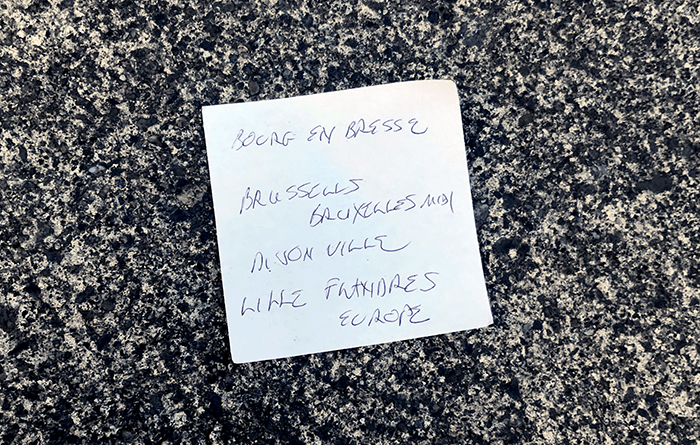 BOURG EN BRESSE
BRUSSELLS
BRUXELLES MIDI
DIJON VILLE
LILLE FLANDRES
EUROPE